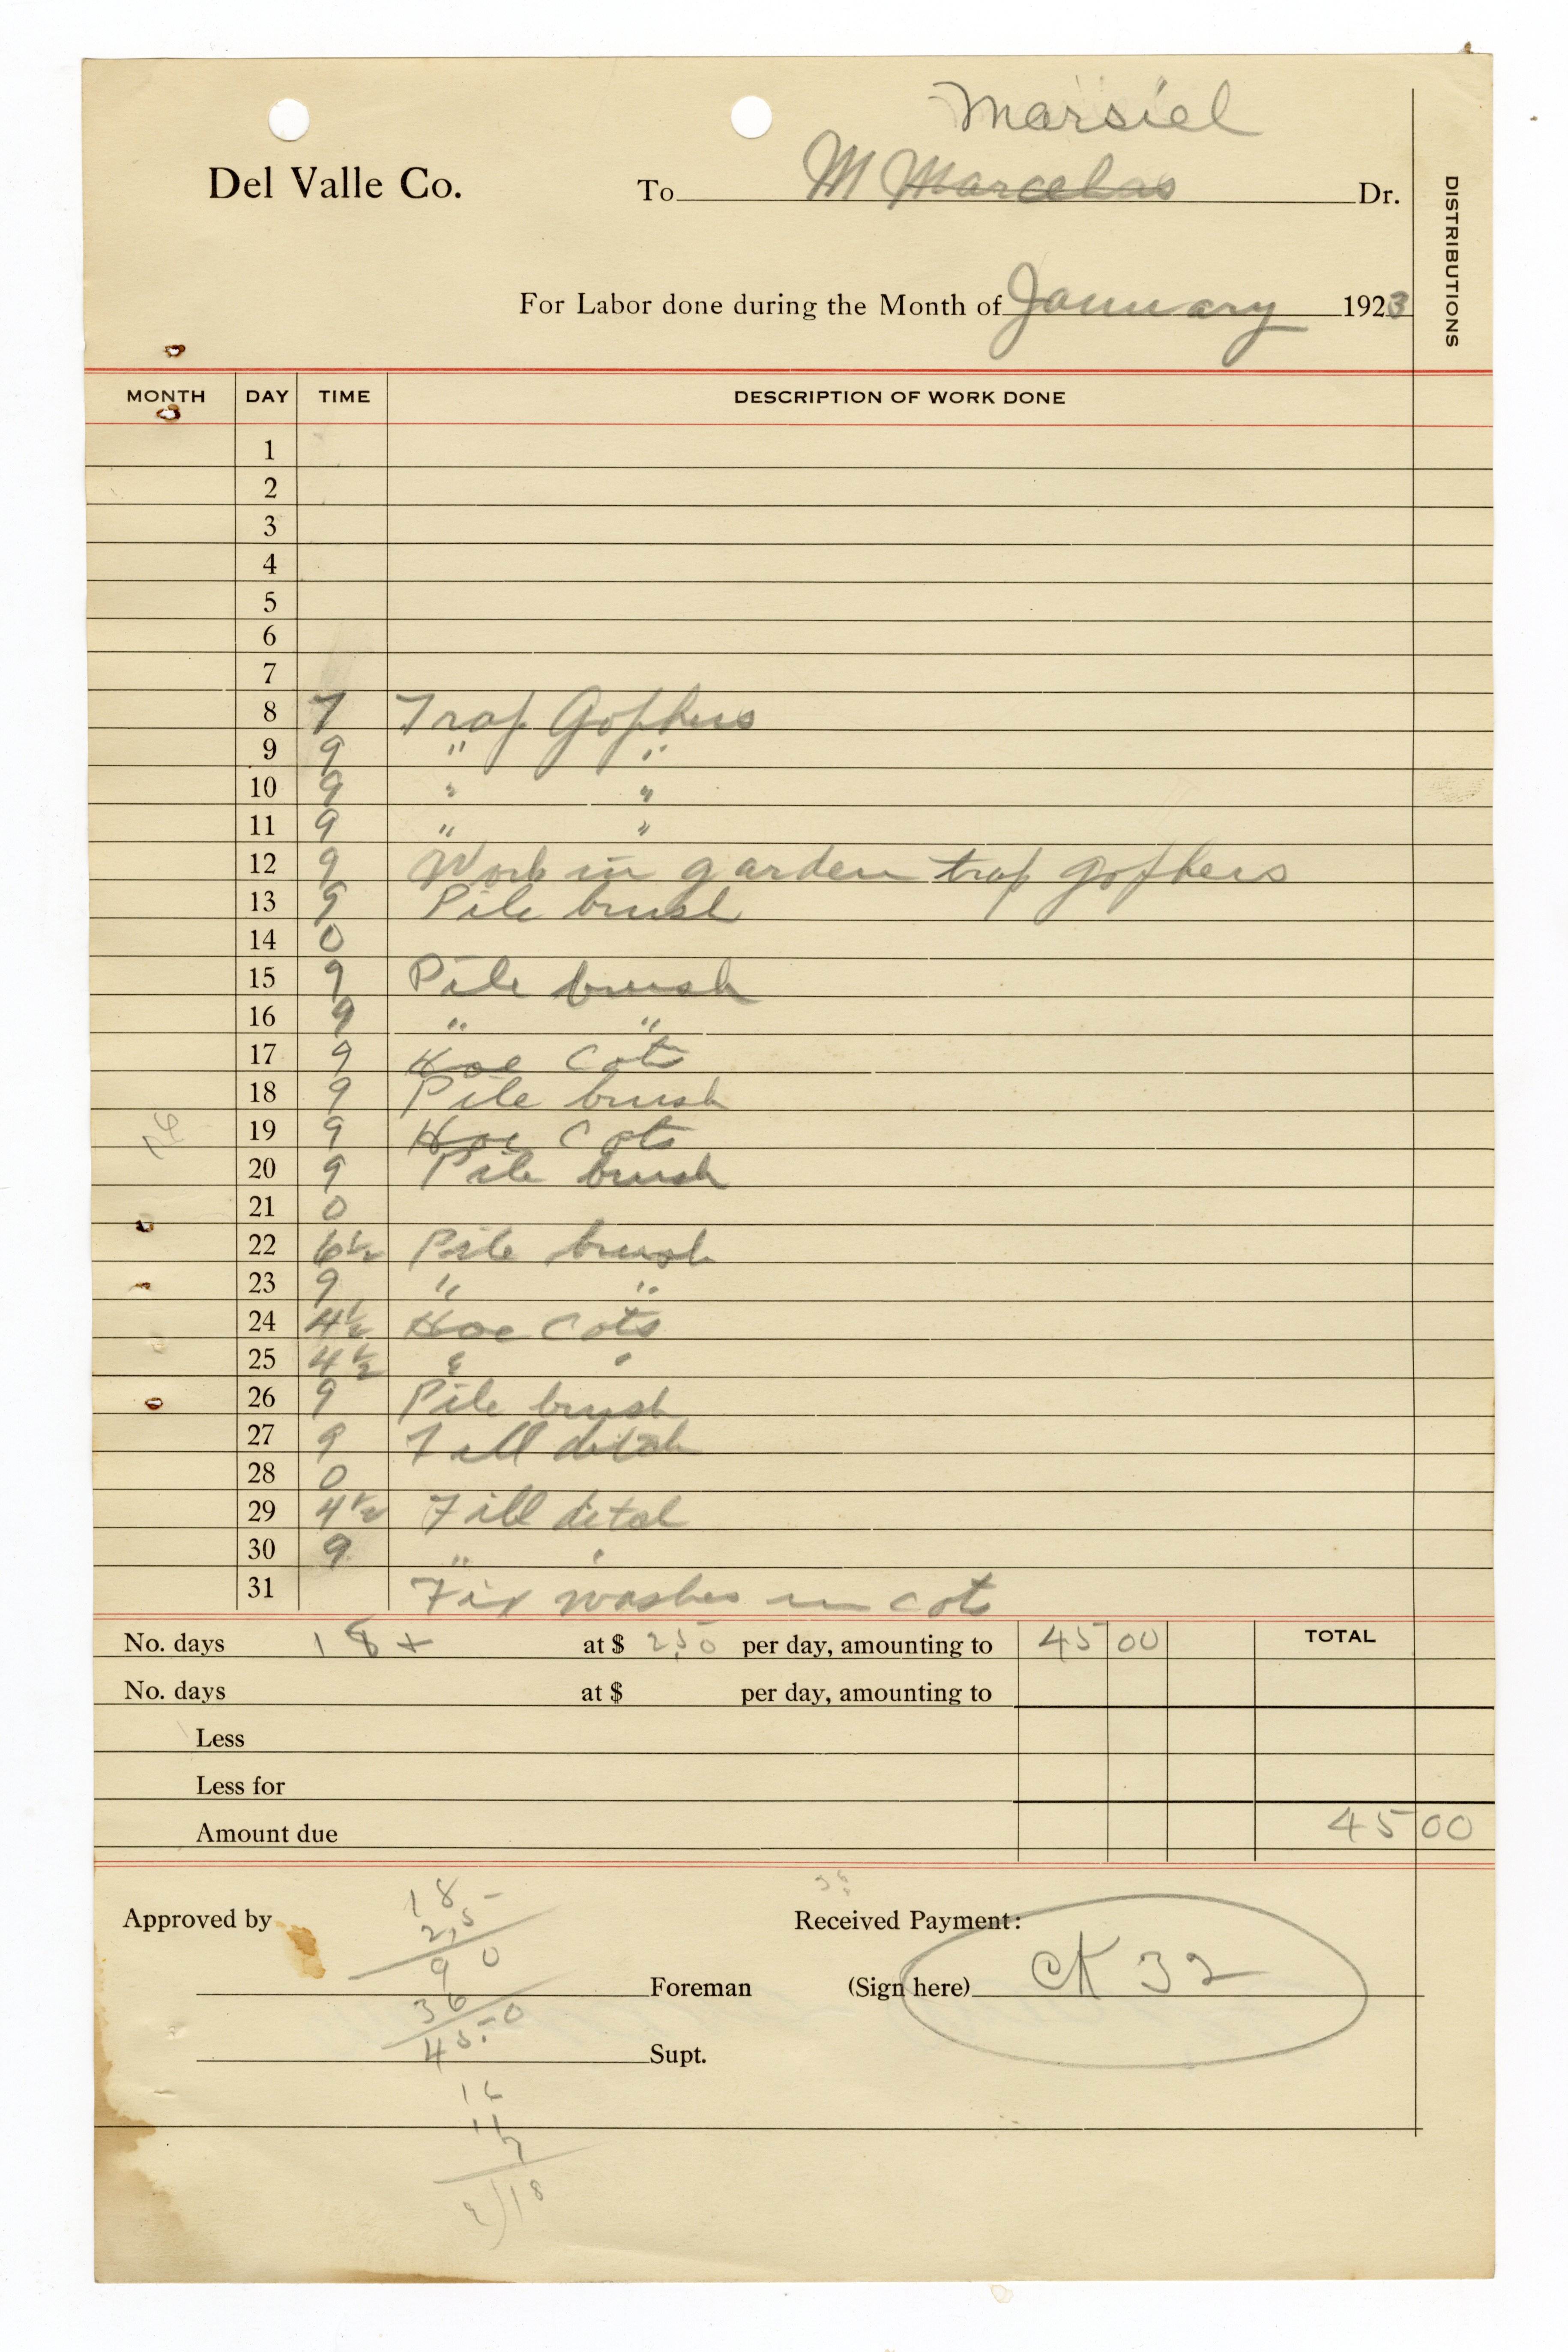 Marsiel
Del Valle Co. To M Marcelas Dr.
DISTRIBUTIONS
For Labor done during the Month of January 1923
MONTH DAY TIME DESCRIPTION OF WORK DONE
1
2
3
4
5
6
7
8 7 Trap Gophers
9 9 " "
10 9 " "
11 9 " "
12 9 Work in garden trap gophers
13 9 Pile brush
14 0
15 9 Pile brush
16 9 " "
17 9 Hoe Cots
18 9 Pile brush
19 9 Hoe Cots
20 9 Pile brush
21 0
22 6½ Pile brush
23 9 " "
24 4½ Hoe Cots
25 4½ " "
26 9 Pile brush
27 9 Fill ditch
28 0
29 4½ Fill ditch
30 9 " "
31 Fix washes in cots
No. days 18 + at $ 2.50 per day, amounting to 45 00 TOTAL
No. days at $ per day, amounting to
Less
Less for
Amount due 45 00
18
2.5
90
36
45.0
Approved by Received Payment:
Foreman (Sign here) CK 32
Supt.
16